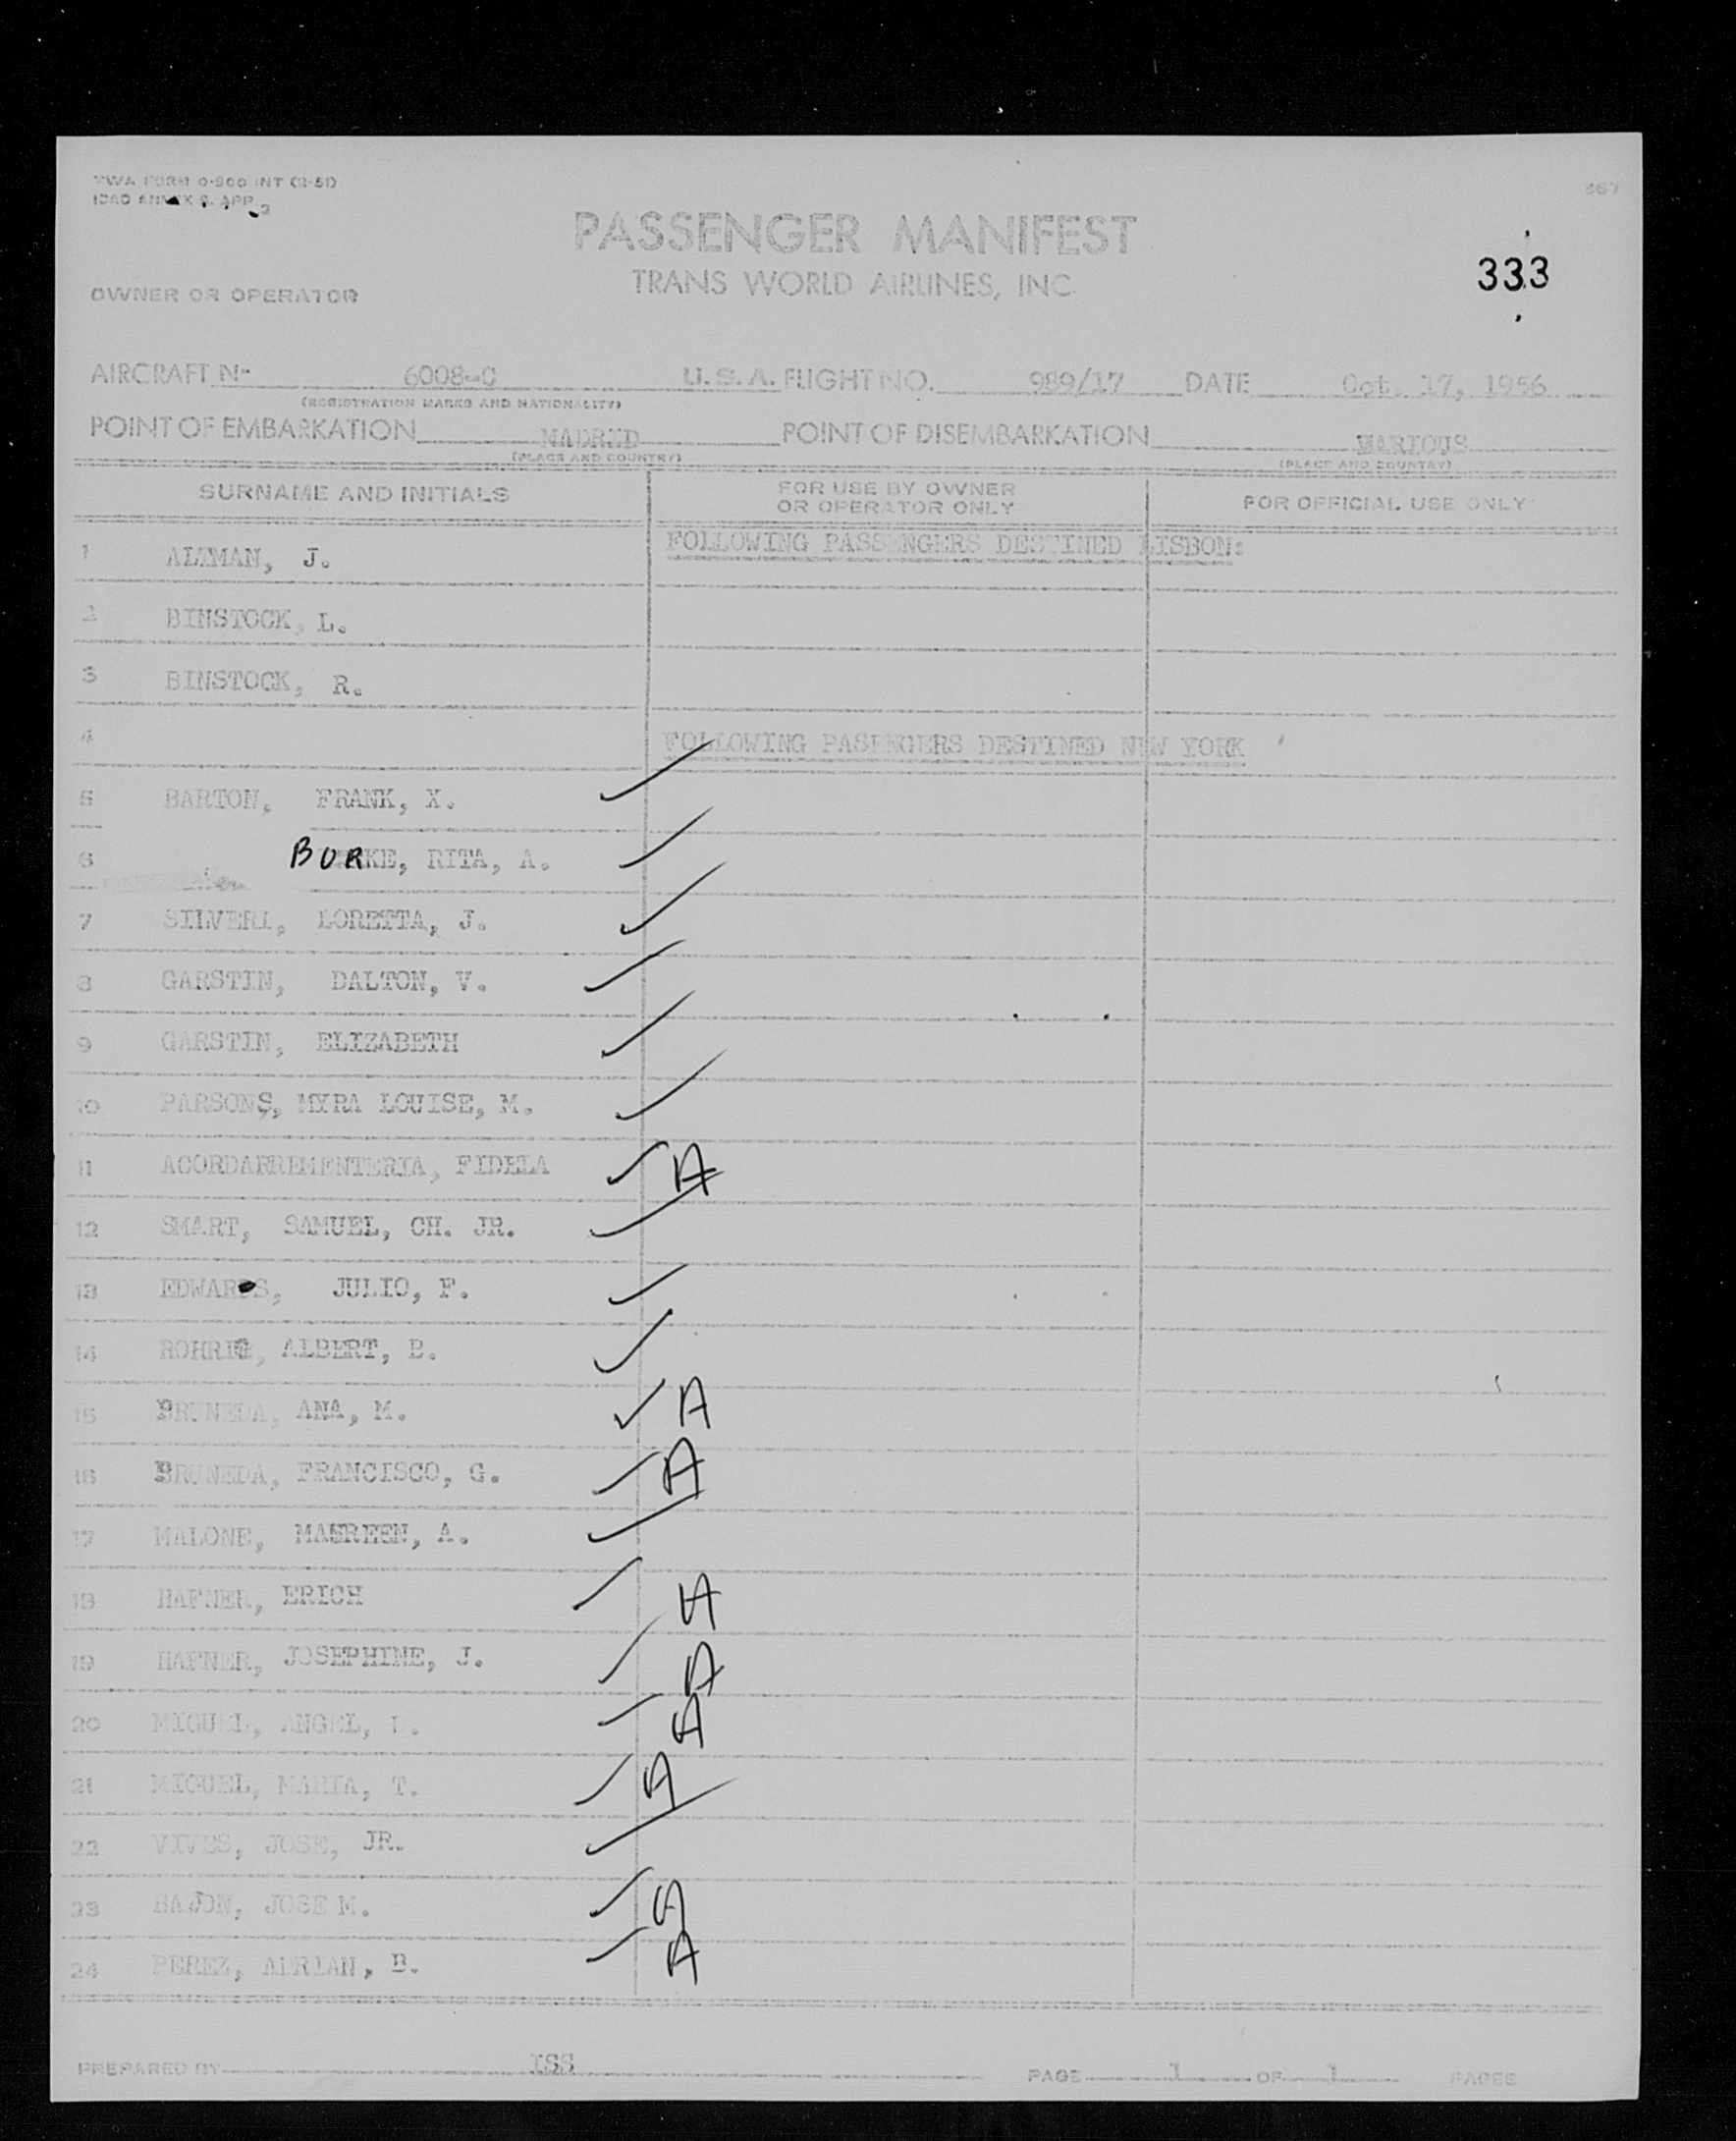 TWA FORM 0-900 INT (2-51)
ICAO ANNEX 9, APP. 3
367
PASSENGER MANIFEST
TRANS WORLD AIRLINES, INC.
333
OWNER OR OPERATOR
AIRCRAFT Nº 6008-C U.S.A. FLIGHT NO. 989/17 DATE Oct. 17, 1956
(REGISTRATION MARKS AND NATIONALITY)
POINT OF EMBARKATION MADRID POINT OF DISEMBARKATION VARIOUS
(PLACE AND COUNTRY) (PLACE AND COUNTRY)
SURNAME AND INITIALS FOR USE BY OWNER OR OPERATOR ONLY FOR OFFICIAL USE ONLY
1 J. FOLLOWING PASSENGERS DESTINED LISBON:
2 BINSTOCK, L.
3 BINSTOCK, R.
4 FOLLOWING PASENGERS DESTINED NEW YORK
5 BARTON, FRANK, X.
6 BURKE, RITA, A.
7 LORETTA, J.
8 GARSTIN, DALTON, V.
9 GARSTIN, ELIZABETH
10 PARSONS, MYRA LOUISE, M.
11 ACORDARREMENTERIA, FIDELA A
12 SMART, SAMUEL, CH. JR.
13 EDWARDS, JULIO, F.
14 ALBERT, B.
15 BRUNEDA, ANA, M. A
16 BRUNEDA, FRANCISCO, G. A
17 MALONE, MAUREEN, A.
18 HAFNER, ERICH A
19 HAFNER, JOSEPHINE, J. A
20 MIGUEL, ANGEL, L. A
21 MIGUEL, MARIA, T. A
22 VIVES, JOSE, JR.
23 BAJON, JOSE M. A
24 PEREZ, ADRIAN, B. A
PREPARED BY ISS PAGE 1 OF 1 PAGES